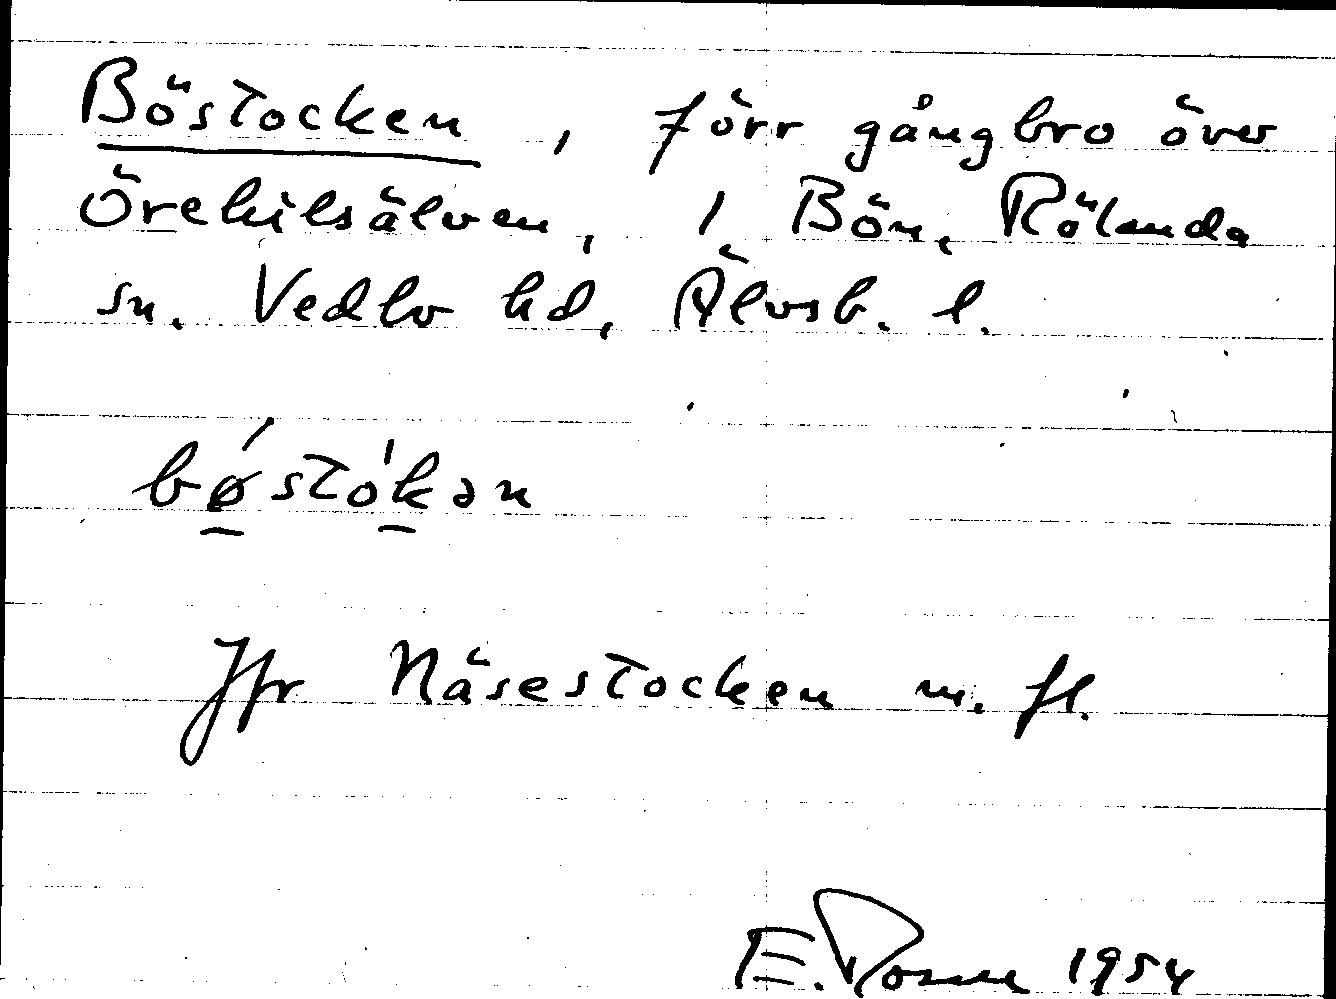 Böstocken, förr gångbro över
Örekilsälven, 1 Bön, Rölanda
sn. Vedbo hd, Älvsb. l.
bǿstòkən
Jfr Näsestocken m. fl.
E. Rosne 1954